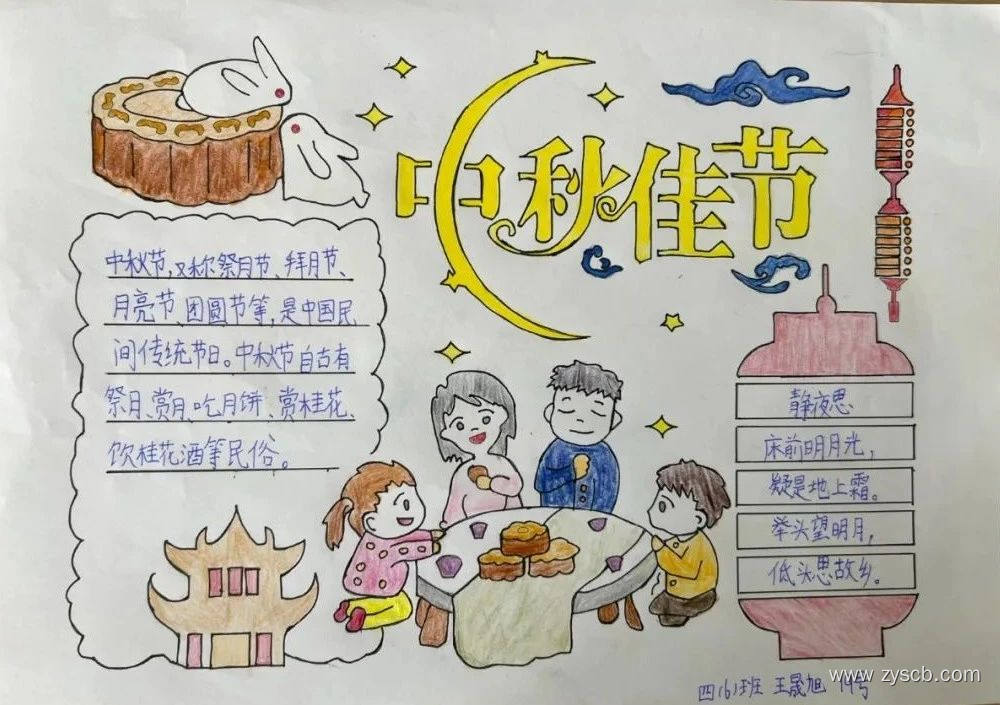 中秋佳节
中秋节,又称祭月节、拜月节、
月亮节、团圆节等,是中国民
间传统节日。中秋节自古有
祭月、赏月、吃月饼、赏桂花、
饮桂花酒等民俗。
静夜思
床前明月光,
疑是地上霜。
举头望明月,
低头思故乡。
www.zyscb.com
四(6)班 王晟旭 19号